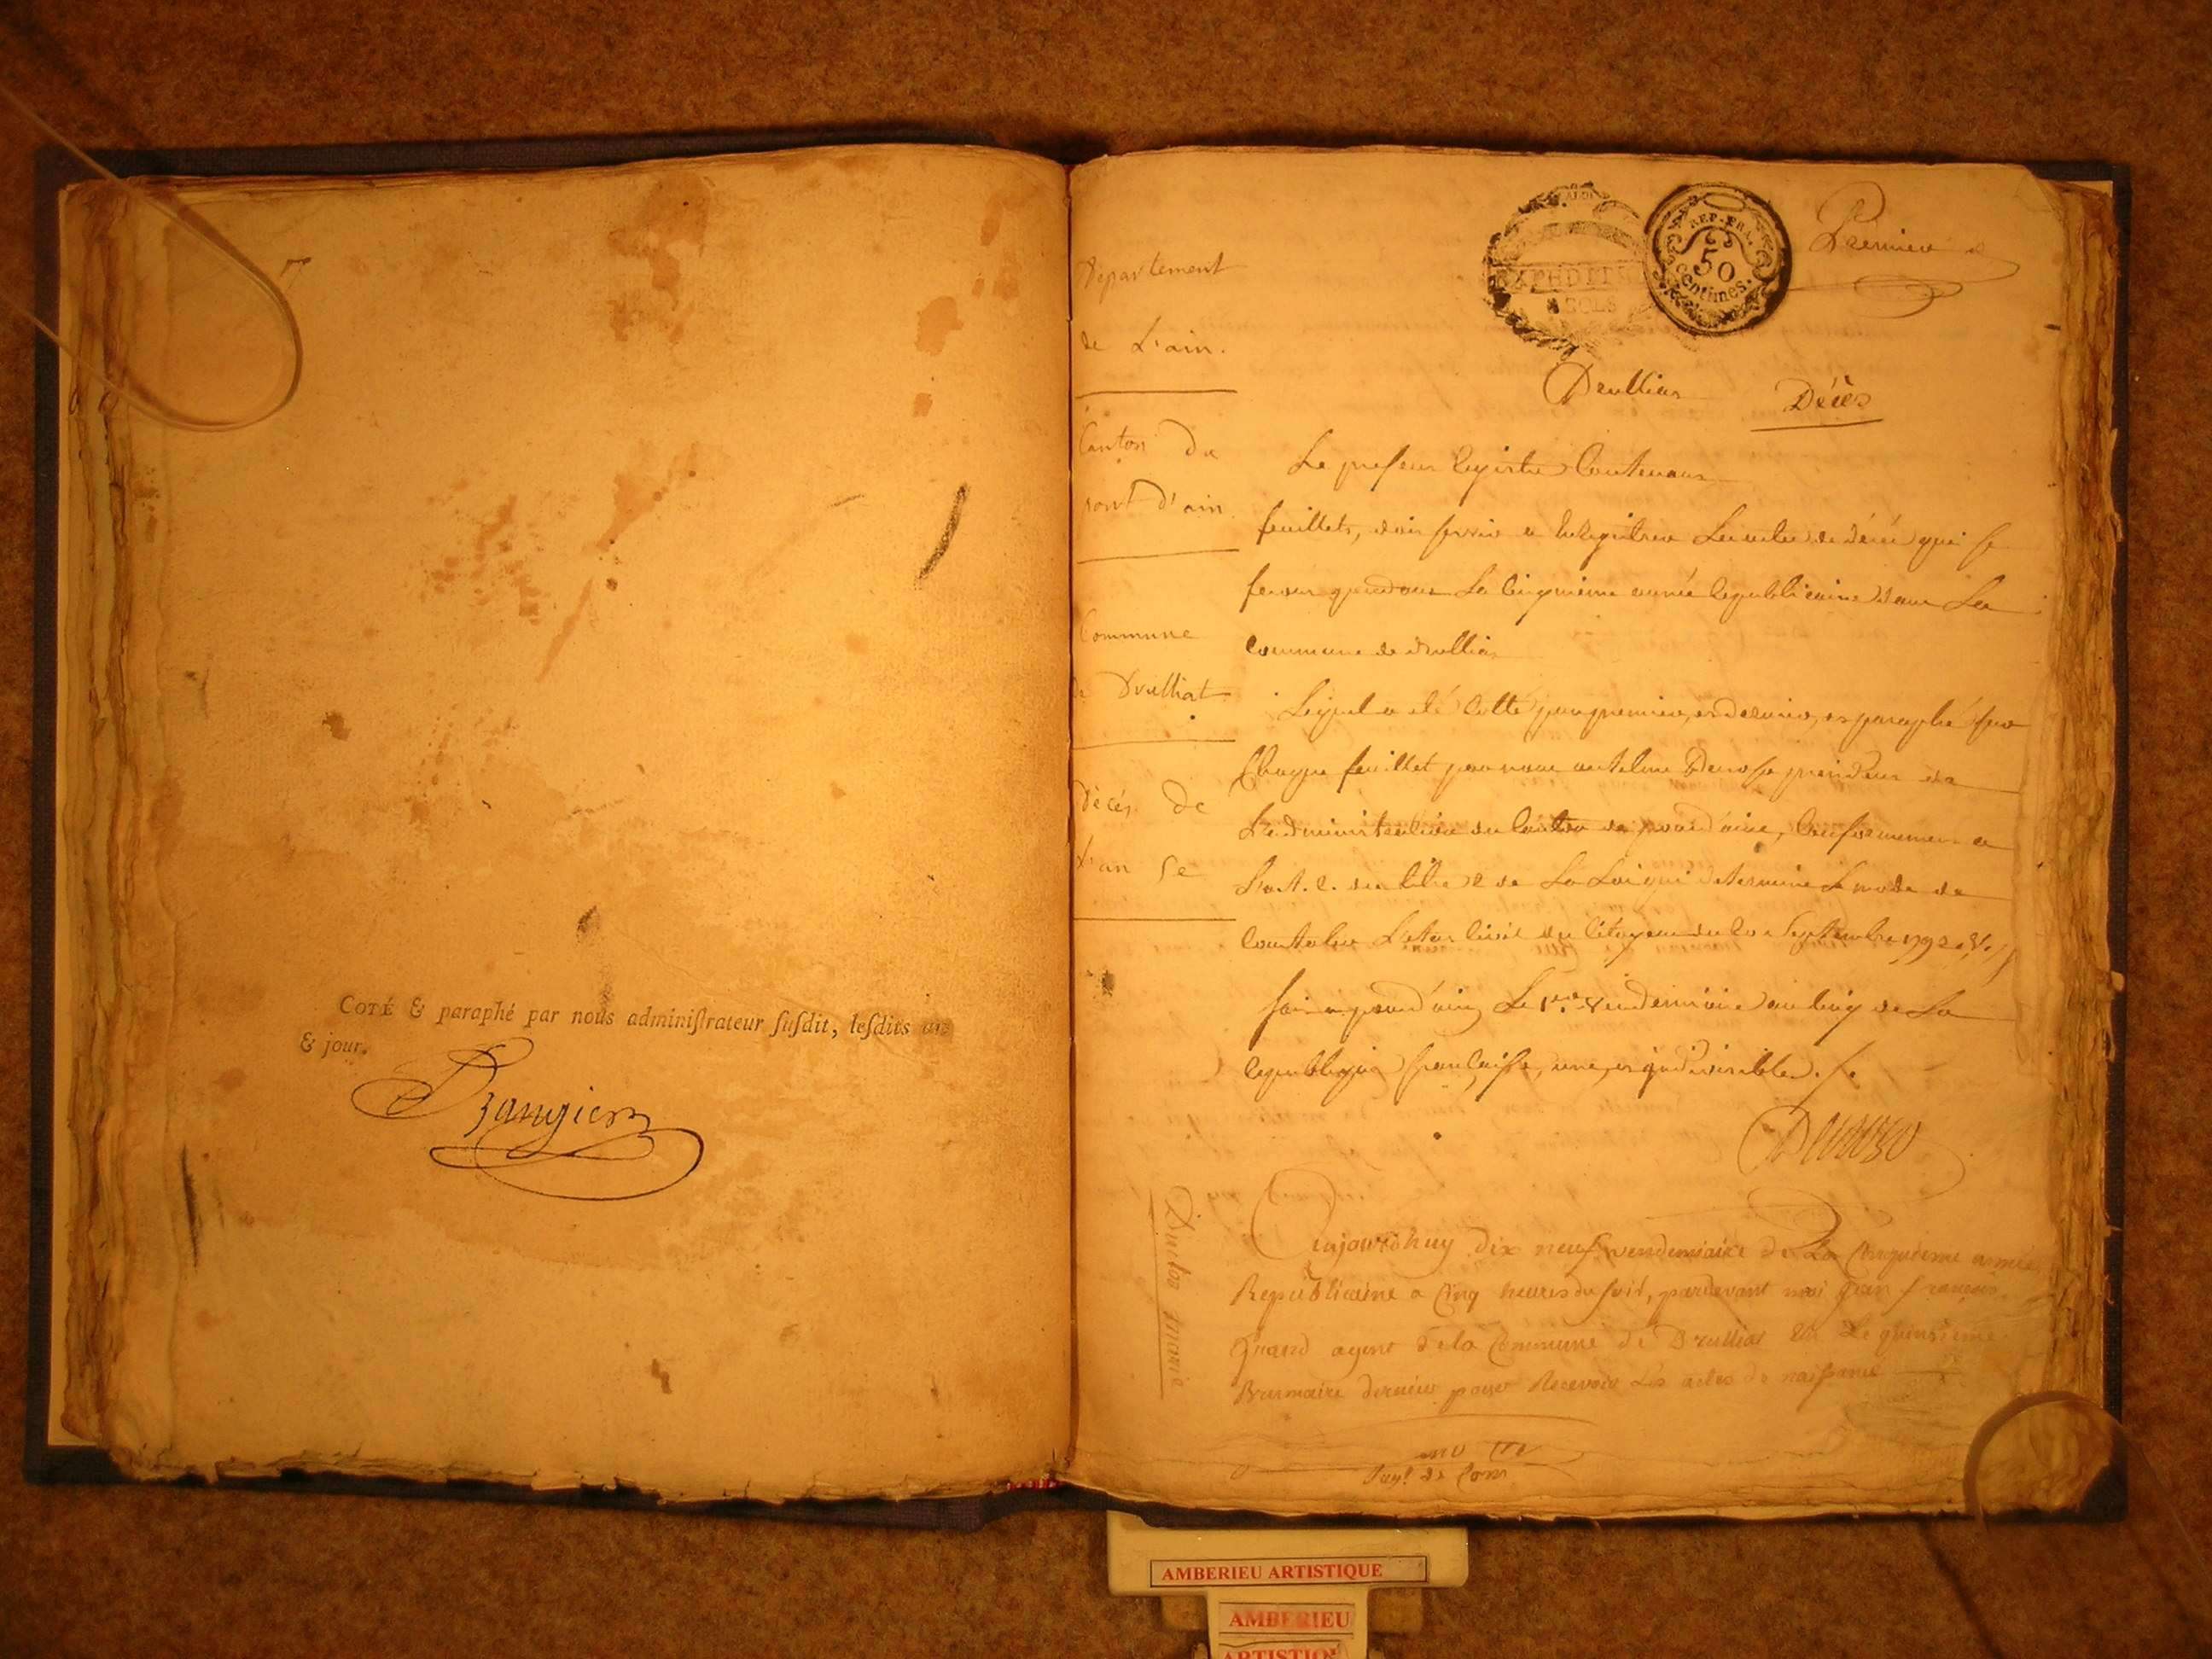 COTÉ & paraphé par nous administrateur susdit, lesdits an
& jour.
Departement
de L'ain.
Canton De
pont d'ain
Commune
de Drulliat
Décés De
L'an 5e
REP. FRA.
50
centimes.
SOLS
Premier
Drulliat Décès
Le present registre Contenant
feuillets, doit servir a Enregistrer Les actes de décés qui se
feront pendant La Cinquieme année republicaine dans La
commune de drulliat
Lequel a eté Cotté par premier et dernier, et paraphé sur
Chaque feuillet par nous antelme president de
L'administration du Canton de pond'ain, Conformement a
L'art. 2. du titre 2 de La Loi qui determine Le mode de
Constater L'etat Civil des Citoyens du 20 Septembre 1792
fait a pond'ain Le 1er Vendemiaire an Cinq de La
republique francaise, une et indivisible.
Duclos marie
Cejourd'huy dix neuf vendemiaire de La Cinquieme année
Republicaine a Cinq heures du soir, pardevant moi jean françois
agent de la Commune de Drulliat Elu Le quinsieme
Brumaire dernier pour Recevoir Les actes de naissance
AMBERIEU ARTISTIQUE
AMBERIEU
ARTISTIQUE